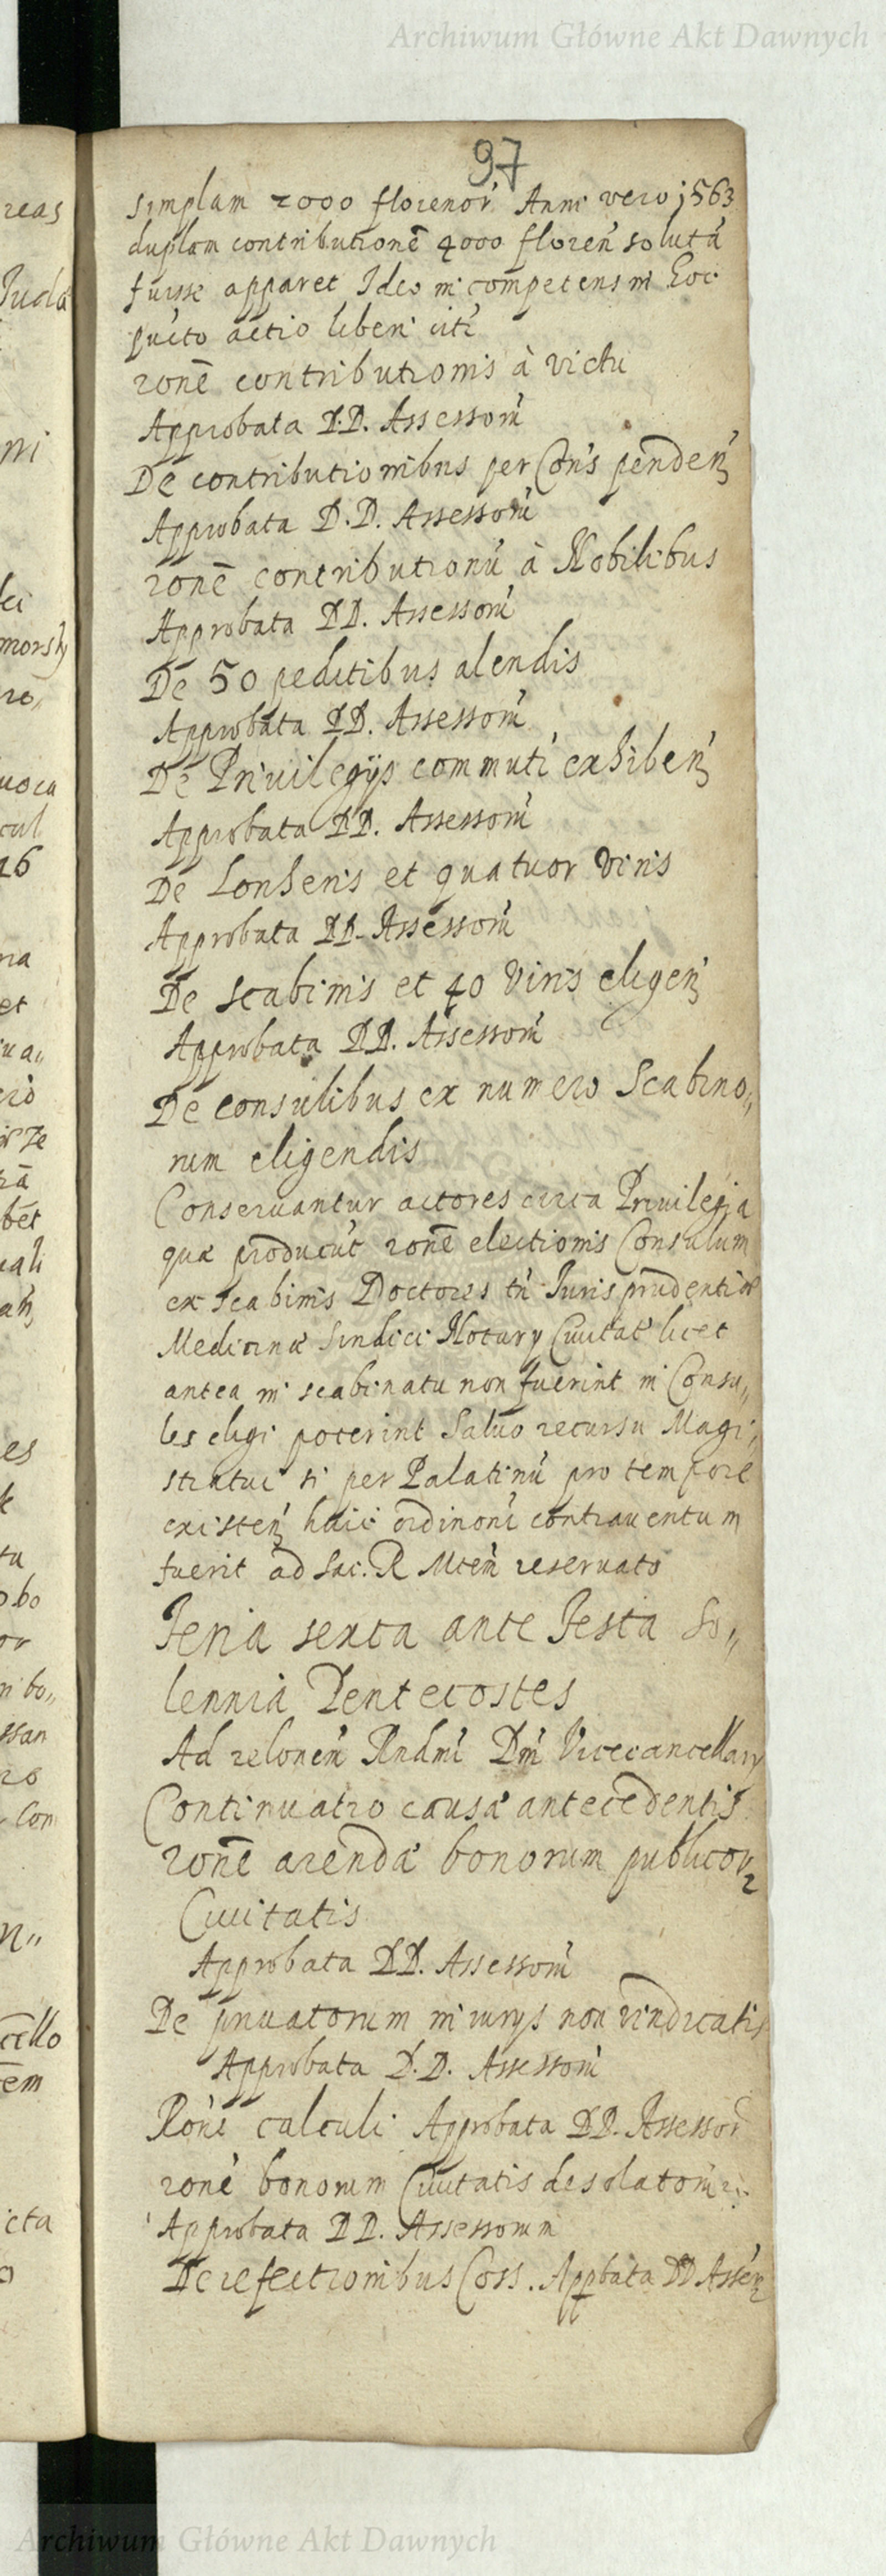 Archiwum Główne Akt Dawnych
97
simplam 2000 florenor̃ Anni vero 1563
duplam contributionē 4000 floren̄ solutā
fuisse apparet Ideo
puncto actio
ronē contributionis à victu
Approbata D.D. Assessorū
De contributionibus per Con̄s penden̄
Approbata D.D. Assessorū
ronē contributionū à Nobilibus
Approbata DD. Assessorū
De 50 peditibus alendis
Approbata DD. Assessorū
De Privilegijs commuti exhiben̄
Approbata DD. Assessorū
De Lonheris et quatuor viris
Approbata DD. Assessorū
De Scabinis et 40 Viris eligen̄
Approbata DD. Assessorū
De consulibus ex numero Scabino„
rum eligendis
Conservantur actores circa Privilegia
quæ producūt ronē electionis Consulum
ex scabinis Doctores tn̄ Juris prudentiæ
Medicinæ Sindici Notary Civitat̃ licet
antea in scabinatu non fuerint in Consu„
les eligi poterint Salvo recursu Magi„
stratui si per Palatinū pro tempore
existen̄ huic ordinoni contraventum
fuerit ad Sac. R Mtem̄ reservato
Feria sexta ante Festa So„
lennia Pentecostes
Ad relonem̄ Rndmi Dn̄i Vicecancellary
Continuatio causæ antecedentis
ronē arendæ bonorum publicor̃
Civitatis
Approbata DD. Assessorū
De privatorum iniurys non vindicatis
Approbata D.D. Assessorū
Ronē calculi Approbata DD. Assessor̃
ronē bonorum Civitatis desolator̃
Approbata DD. Assessorum
De refectionibus Coss. Appbata DD Assēr
reas
Juda
ni
lei
morsky
ro„
uoca
cul
16
na
et
bet
es
tu
obo
or
n bo„
ssan
ro
Con
n„
cello
em
icta
Archiwum Główne Akt Dawnych